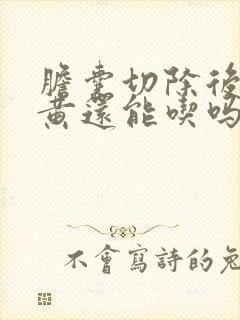 膽囊切除後
黄還能喫吗
不會寫詩的兔